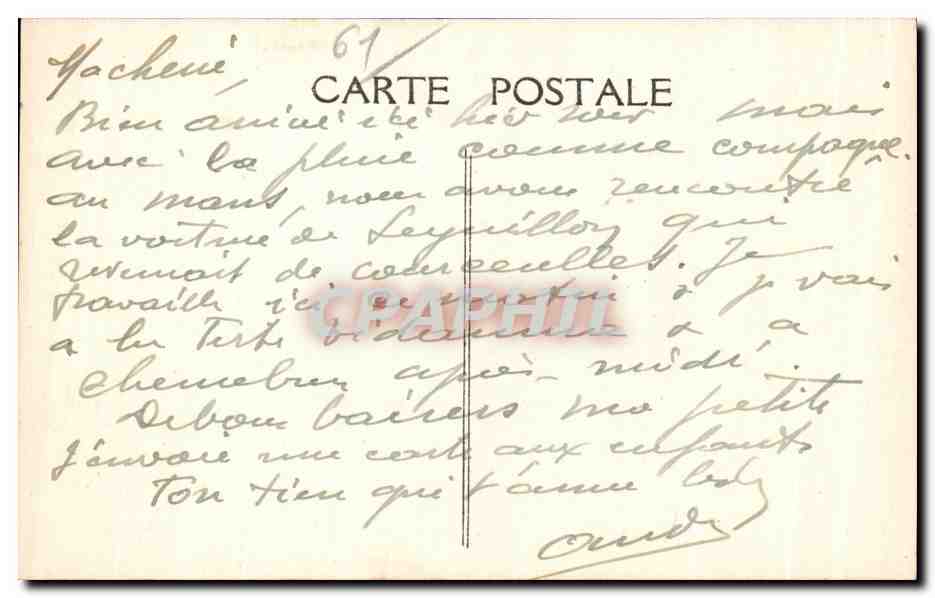 61
Ma cherie,
CARTE POSTALE
Bien arrivé ici hier soir mais
avec la pluie comme compagne.
au mans, nous avons rencontré
la voiture de qui
revenait de courseulles. Je
travaille ici ce matin & je vais
a la ferte vidamme & a
après-midi.
De bons baisers ma petite
J'envoie une carte aux enfants
Ton tien qui t'aime
André
CPAPHIL